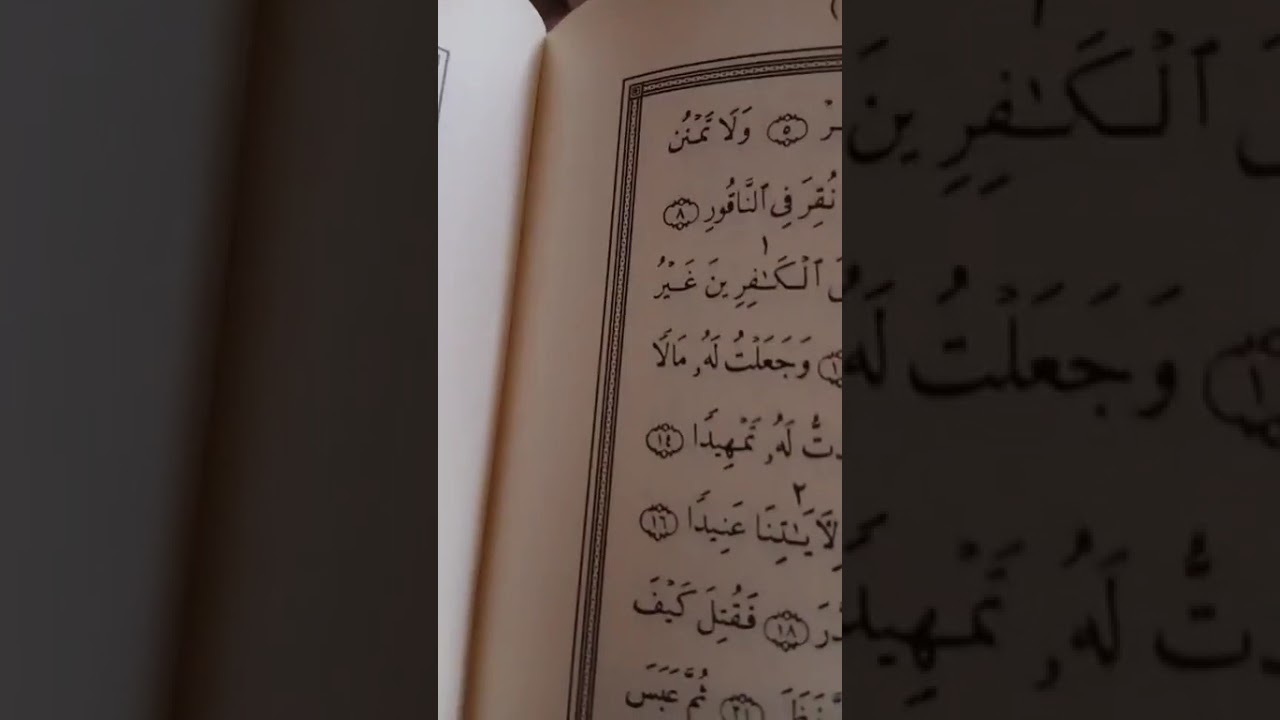 ۝٥ وَلَا تَمْنُن
نُقِرَ فِى ٱلنَّاقُورِ ۝٨
١
ٱلْكَـٰفِرِينَ غَيْرُ
وَجَعَلْتُ لَهُۥ مَالًا
لَهُۥ تَمْهِيدًا ۝١٤
٢
لِأَيَـٰتِنَا عَنِيدًا ۝١٦
۝١٨ فَقُتِلَ كَيْفَ
۝٢١ ثُمَّ عَبَسَ